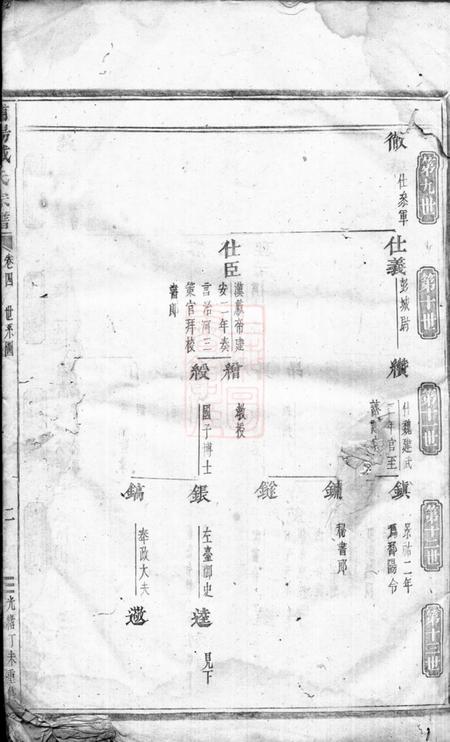 第九世
第十世
第十一世
第十二世
第十三世
徹
仕參軍
仕義
彭城尉
仕臣
漢獻帝建
安二年奏
言治河三
策官拜校
書郎
纘
仕魏建武
二年官至
繒
教授
綬
國子博士
鎮
景
二年
爲鄱陽令
鏞
秘書郎
鎰
鋹
左臺御史
鎬
奉政大夫
達
見下
戴氏宗譜
卷四
世系圖
二
光緒丁未重